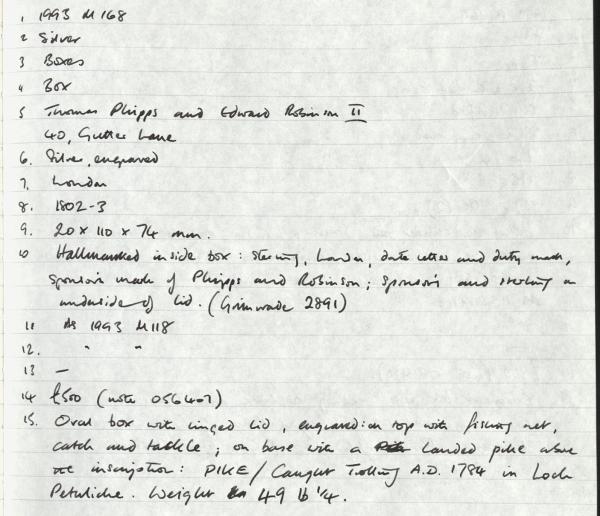 1 1993 M168
2 Silver
3 Boxes
4 Box
5 Thomas Phipps and Edward Robinson II
40, Gutter Lane
6. Silver, engraved
7. London
8. 1802-3
9. 20 x 110 x 74 mm.
10 Hallmarked inside box: sterling, London, date letter and duty mark,
sponsor's mark of Phipps and Robinson; sponsor's and sterling on
underside of lid. (Grimwade 2891)
11 As 1993 M118
12. " "
13 —
14 £500 (note 056407)
15. Oval box with hinged lid, engraved on top with fishing net,
catch and tackle; on base with a landed pike above
inscription: PIKE / Caught Trolling A.D. 1784 in Loch
Petuliche. Weight 49 lb 1/4.